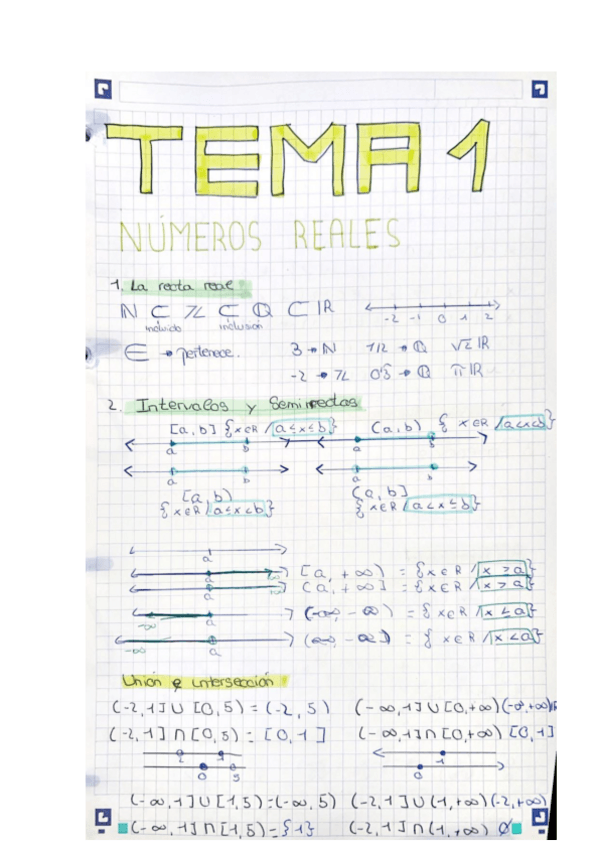 TEMA 1
NÚMEROS REALES
1. La recta real
ℕ ⊂ ℤ ⊂ ℚ ⊂ ℝ
incluido inclusión
-2 -1 0 1 2
∈ → pertenece.
3 → ℕ 1/2 → ℚ √2 ℝ
-2 → ℤ 0'5 → ℚ π ℝ
2. Intervalos y Semirrectas
[a, b] {x∈R / a≤x≤b} (a, b) { x∈R / a<x<b}
a b a b
a b a b
[a, b) (a, b]
{x∈R / a≤x<b} {x∈R / a<x≤b}
a
a +∞ [a, +∞) = {x∈R / x ≥ a}
a (a, +∞] = {x∈R / x > a}
-∞ a = {x∈R / x ≤ a}
-∞ a = { x∈R / x < a}
Unión e intersección
(-2, 1] ∪ [0, 5) = (-2, 5) (-∞, 1] ∪ [0, +∞) (-∞, +∞)
(-2, 1] ∩ [0, 5) = [0, 1] (-∞, 1] ∩ [0, +∞) [0, 1]
-2 1 1
0 5 0
(-∞, 1] ∪ [1, 5) = (-∞, 5) (-2, 1] ∪ (1, +∞) (-2, +∞)
(-∞, 1] ∩ [1, 5) = {1} (-2, 1] ∩ (1, +∞) Ø